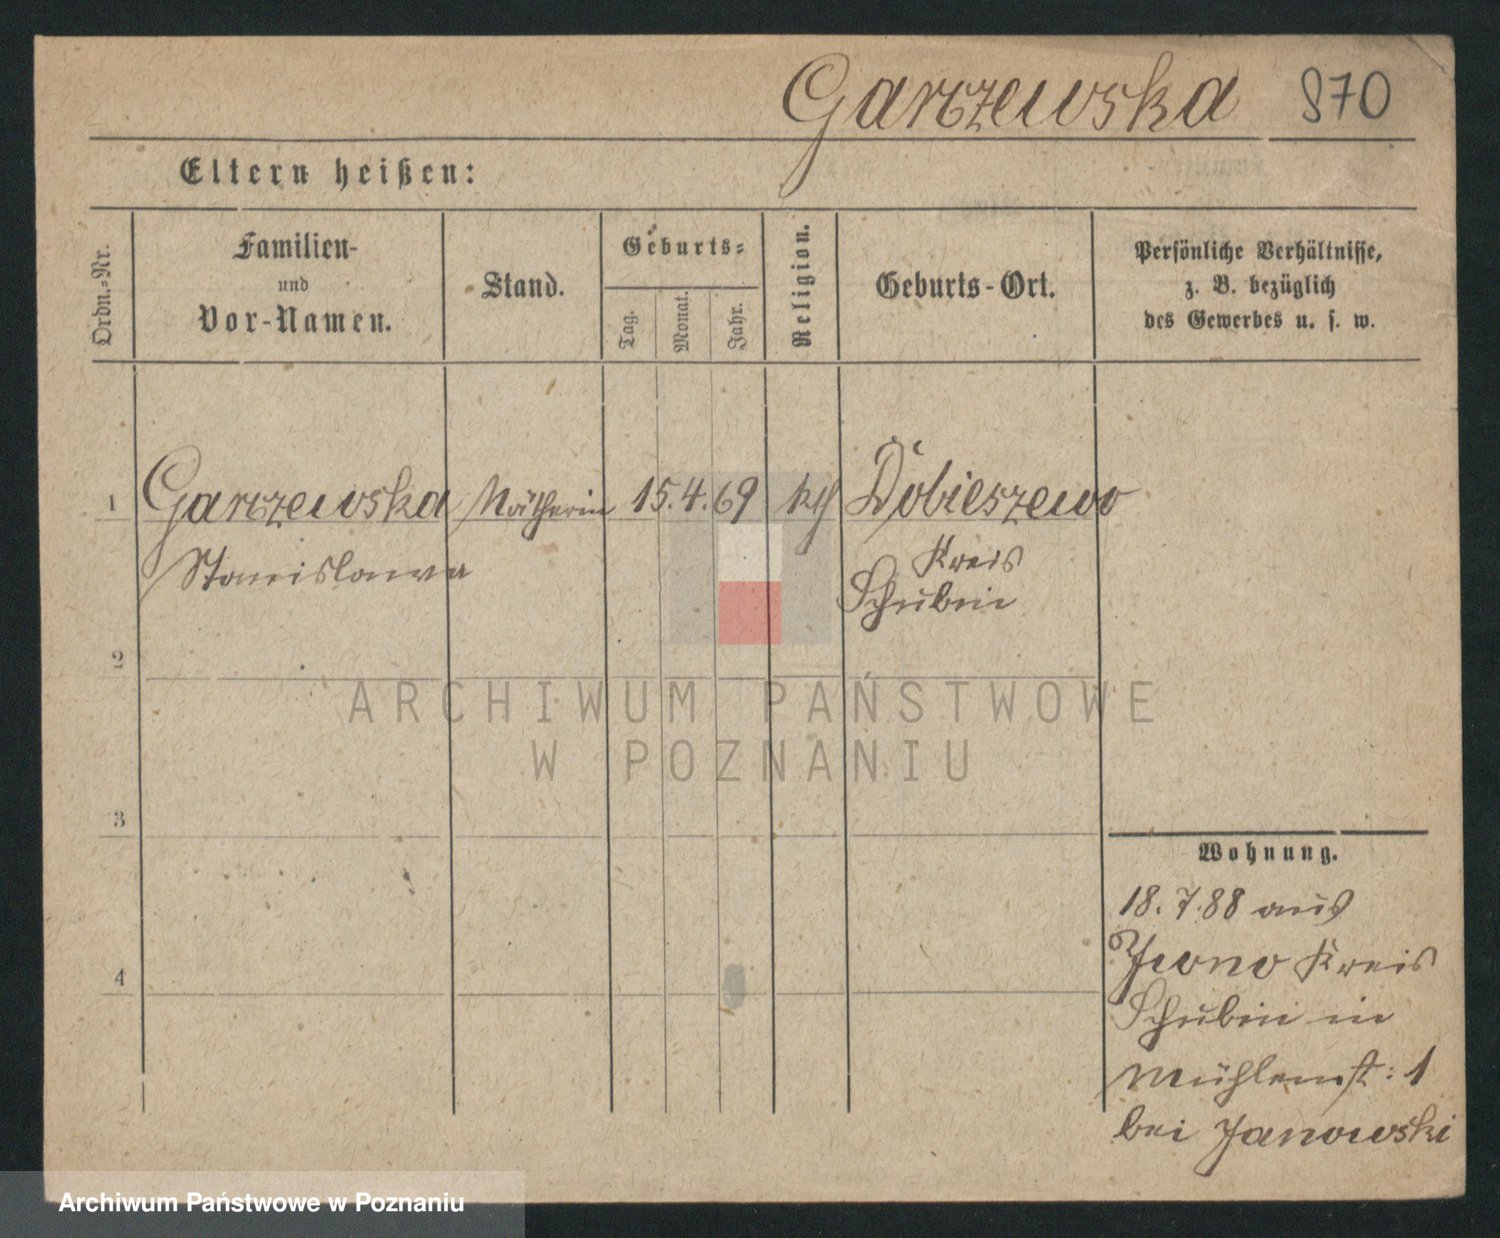 Garczewska 870
Eltern heißen:
Ordn.-Nr.
Familien-
und
Vor-Namen.
Stand.
Geburts-
Tag.
Monat.
Jahr.
Religion.
Geburts-Ort.
Persönliche Verhältnisse,
z. B. bezüglich
des Gewerbes u. s. w.
1 Garczewska Nätherin 15. 4. 69 kth Dobieszewo
Stanislawa Kreis
Schubin
2
3
4
ARCHIWUM PAŃSTWOWE
W POZNANIU
Wohnung.
18. 7. 88 aus
Kreis
Schubin in
Mühlenst: 1
bei Janowski
Archiwum Państwowe w Poznaniu